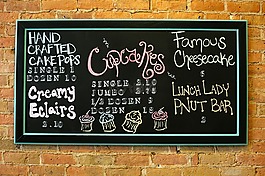 HAND
CRAFTED
CAKEPOPS
SINGLE 1
DOZEN 10
Creamy
Eclairs
2.10
Cupcakes
SINGLE 2.10
JUMBO 2.75
1/2 DOZEN 9
DOZEN 19
Famous
Cheesecake
LUNCH LADY
PNUT BAR
2